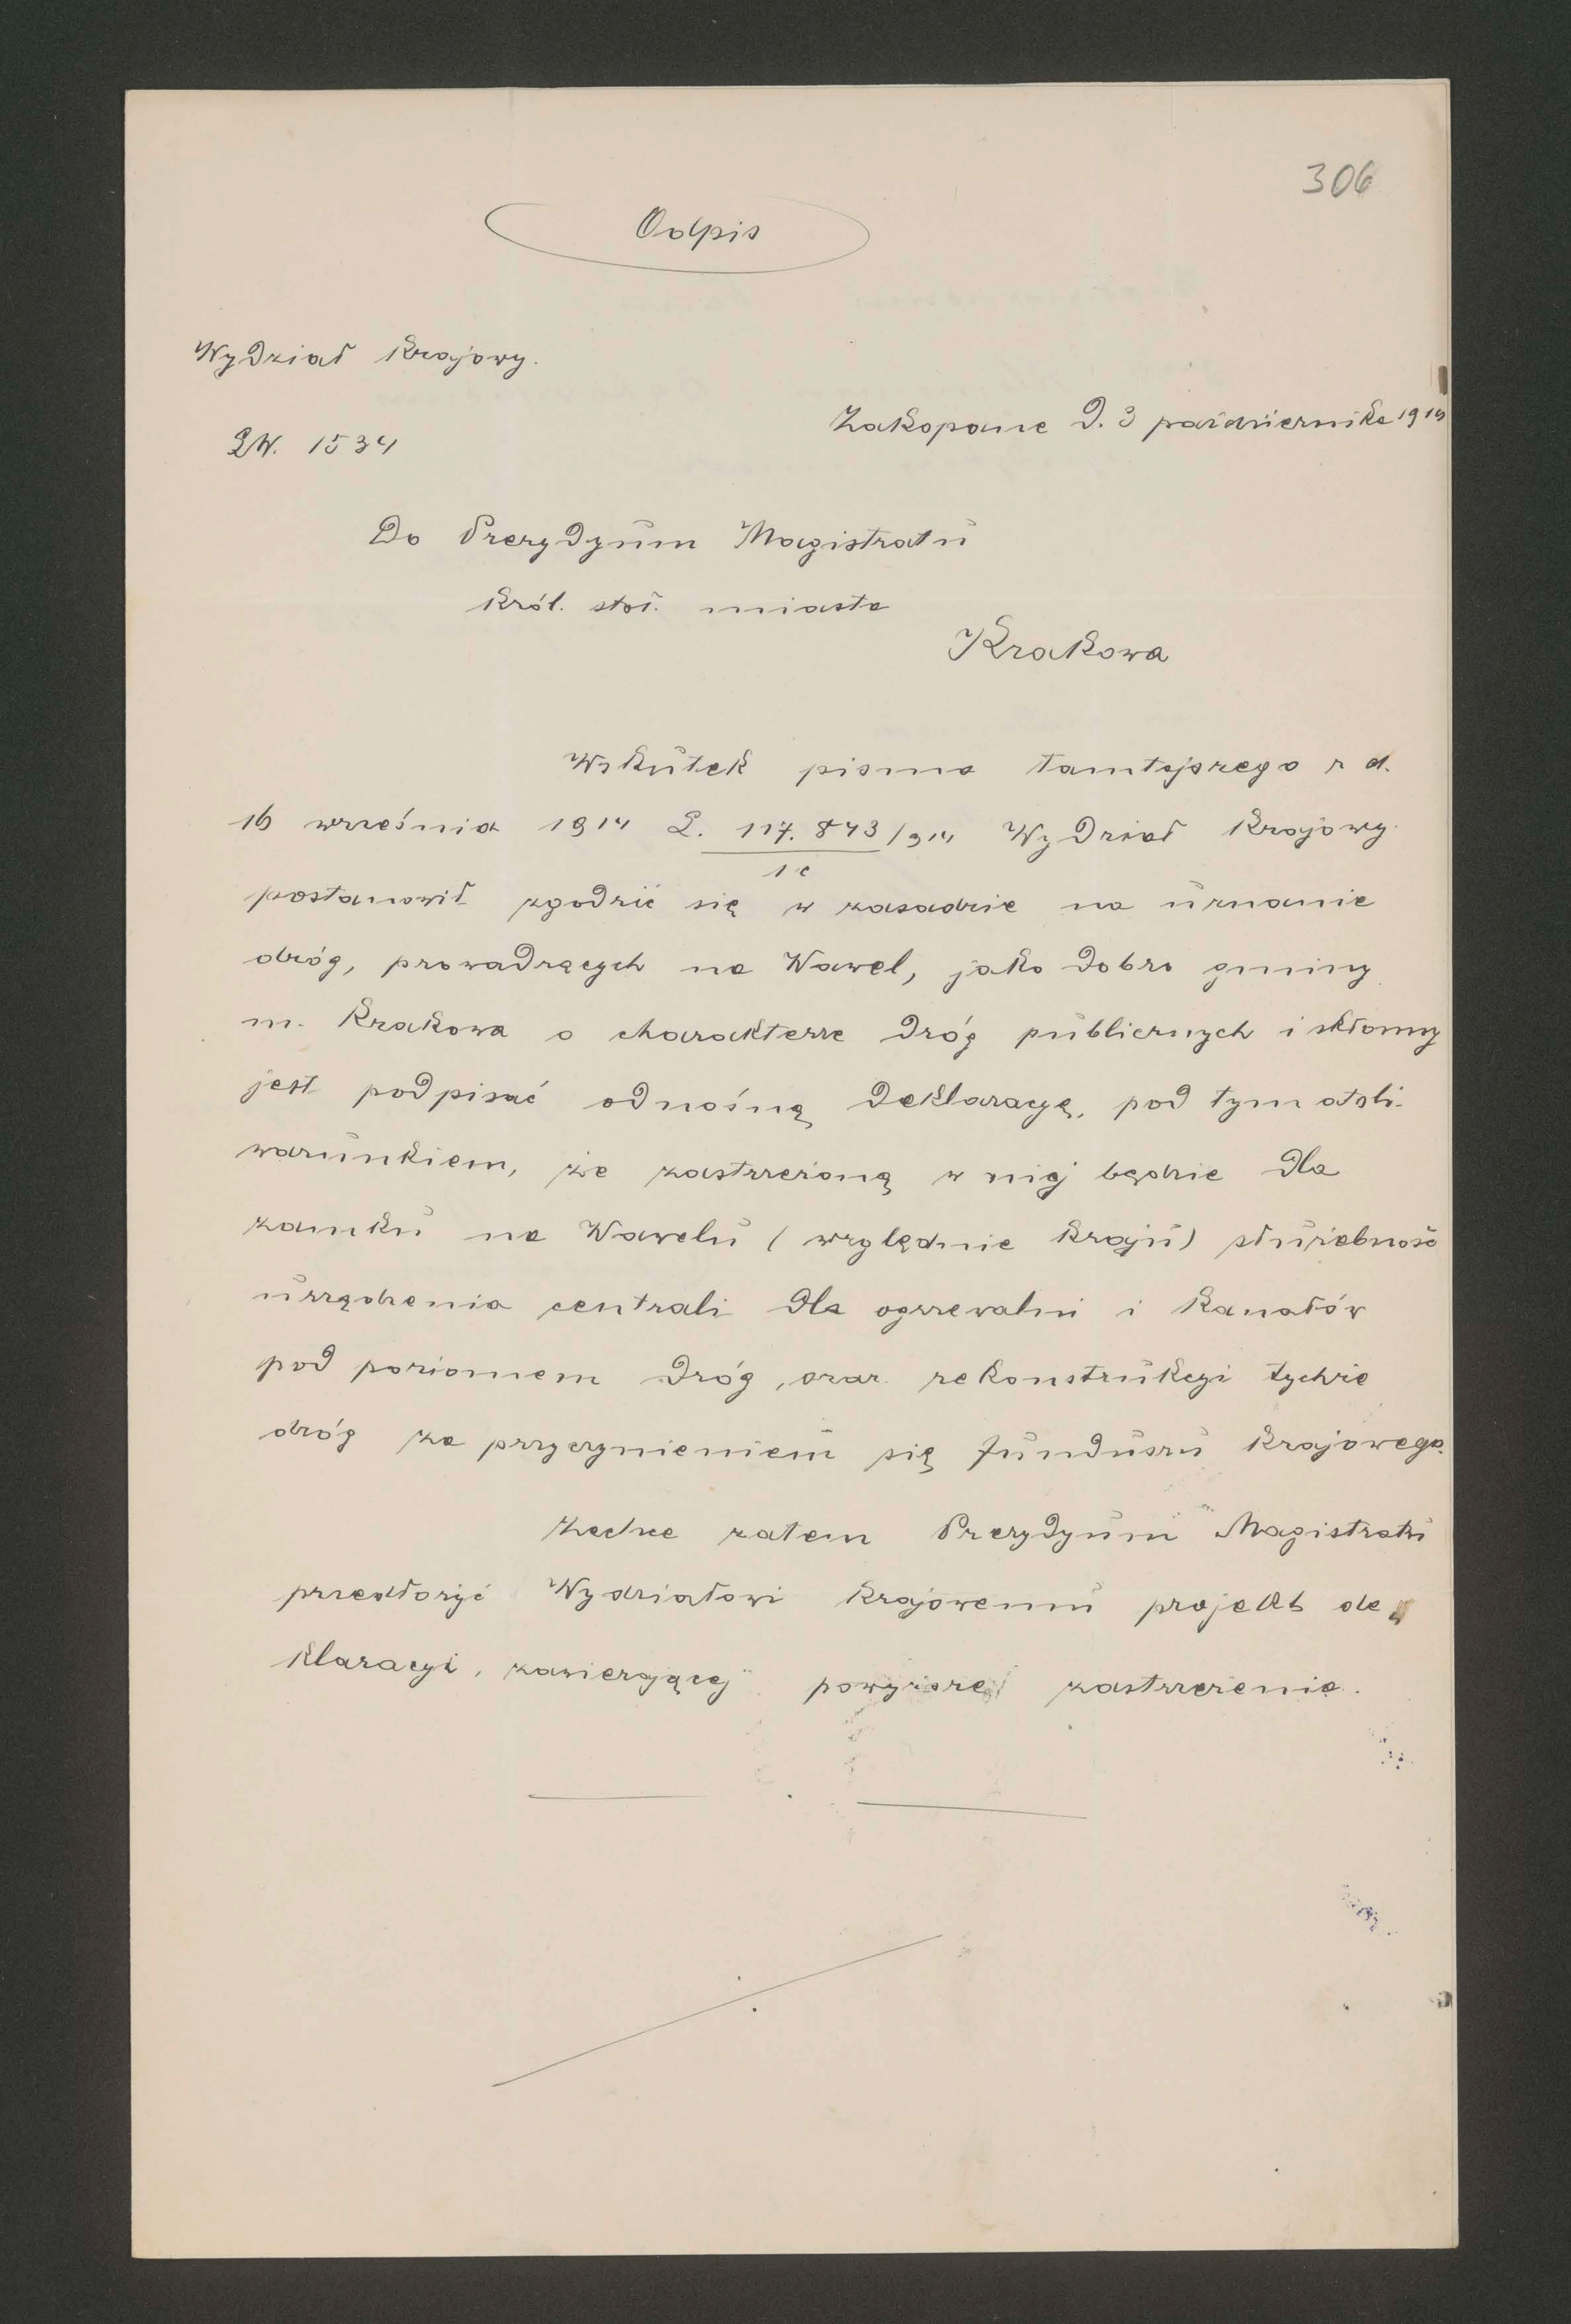 306
Odpis
Wydział Krajowy.
Zakopane d. 3 października 1914
LW. 1534
Do Prezydyum Magistratu
król. stoł. miasta
Krakowa
Wskutek pisma tamtejszego z d.
16 września 1914 L. 117.843/914 Wydział Krajowy
postanowił zgodzić się w zasadzie na uznanie
dróg, prowadzących na Wawel, jako dobro gminy
m. Krakowa o charakterze dróg publicznych i skłonny
jest podpisać odnośną deklaracyę, pod tym atoli
warunkiem, że zastrzeżoną w niej będzie dla
zamku na Wawelu (względnie kraju) służebność
urządzenia centrali dla ogrzewalni i kanałów
pod poziomem dróg, oraz rekonstrukcyi tychże
dróg za przyczynieniem się funduszu krajowego.
Zechce zatem Prezydyum Magistratu
przedłożyć Wydziałowi krajowemu projekt de„
klaracyi, zawierającej powyższe zastrzeżenie.